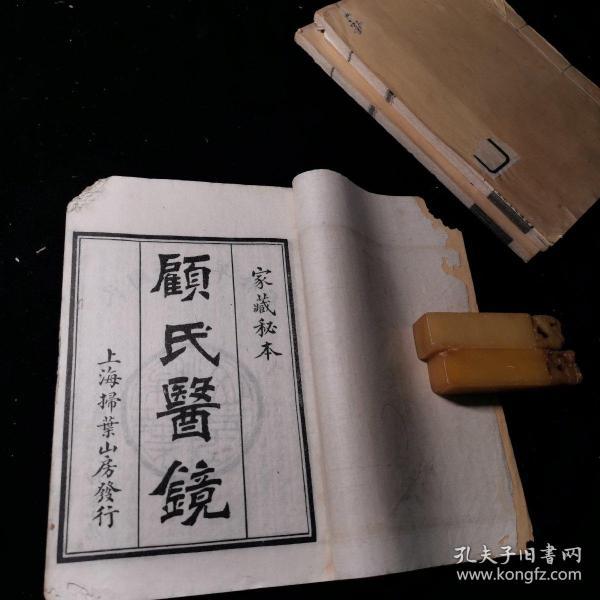 家藏秘本
顧氏醫鏡
上海掃葉山房發行
孔夫子旧書网
www.kongfz.com